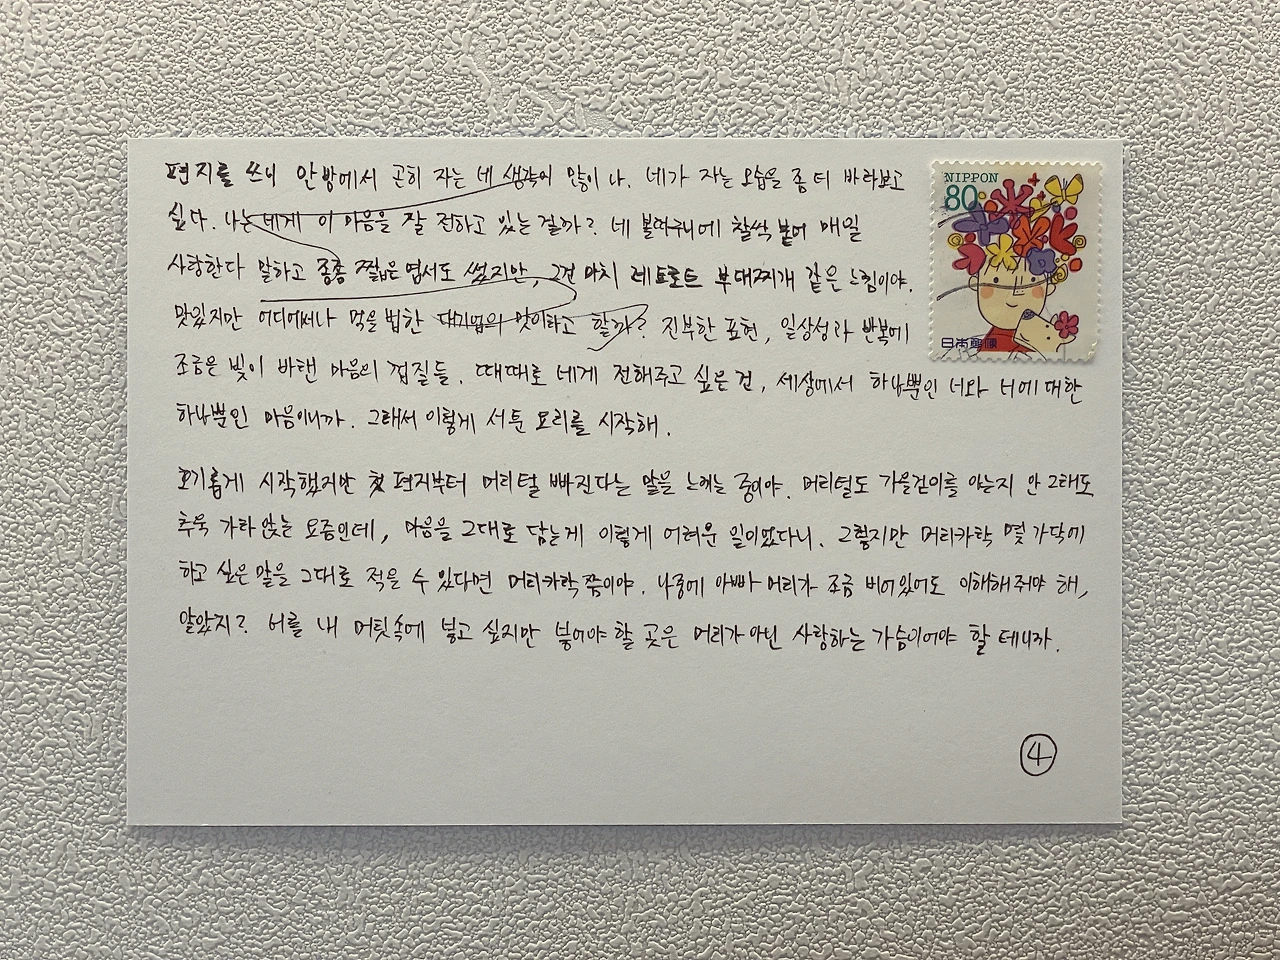 편지를 쓰니 안방에서 곤히 자는 네 생각이 많이 나. 네가 자는 모습을 좀 더 바라보고
싶다. 나는 네게 이 마음을 잘 전하고 있는 걸까? 네 볼따구니에 찰싹 붙어 매일
사랑한다 말하고 종종 짧은 엽서도 썼지만, 그건 마치 레토르트 부대찌개 같은 느낌이야.
맛있지만 어디에서나 먹을 법한 대기업의 맛이라고 할까? 진부한 표현, 일상성과 반복에
조금은 빛이 바랜 마음의 겁질들. 때때로 네게 전해주고 싶은 건, 세상에서 하나뿐인 너와 너에 대한
하나뿐인 마음이니까. 그래서 이렇게 서툰 요리를 시작해.
호기롭게 시작했지만 첫 편지부터 머리털 빠진다는 말을 느끼는 중이야. 머리털도 가을걷이를 아는지 안 그래도
추욱 가라앉는 요즘인데, 마음을 그대로 담는게 이렇게 어려운 일이었다니. 그렇지만 머리카락 몇 가닥에
하고 싶은 말을 그대로 적을 수 있다면 머리카락쯤이야. 나중에 아빠 머리가 조금 비어있어도 이해해줘야 해,
알았지? 너를 내 머릿속에 넣고 싶지만 넣어야 할 곳은 머리가 아닌 사랑하는 가슴이어야 할 테니까.
4
NIPPON
80
日本郵便